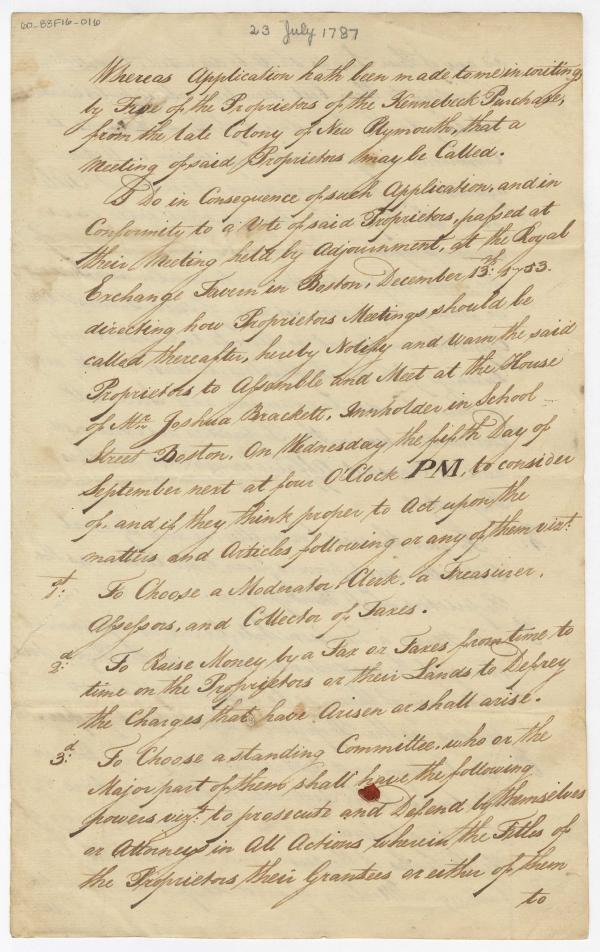 60-B3F16-016
23 July 1787
Whereas Application hath been made to me in writing
by Five of the Proprietors of the Kennebeck Purchase,
from the late Colony of New Plymouth, that a
Meeting of said Proprietors may be Called.
I Do in Consequence of such Application, and in
Conformity to a Vote of said Proprietors, passed at
their Meeting held by Adjournment, at the Royal
Exchange Tavern in Boston, December 13th. 1753.
directing how Proprietors Meetings should be
called thereafter, hereby Notify and warn the said
Proprietors to Assemble and Meet at the House
of Mr. Joshua Brackett, Innholder in School
Street Boston, On Wednesday the fifth Day of
September next at four O'Clock PM, to consider
of, and if they think proper to Act upon the
matters and Articles following or any of them vizt.
1st. To Choose a Moderator Clerk, a Treasurer,
Assessors, and Collector of Taxes.
2d. To Raise Money by a Tax or Taxes from time to
time on the Proprietors or their Lands to Defrey
the Charges that have Arisen or shall arise.
3d. To Choose a standing Committee, who or the
Major part of them shall have the following
powers vizt. to prosecute and Defend by themselves
or Attorneys in All Actions wherein the Titles of
the Proprietors their Grantees or either of them
to